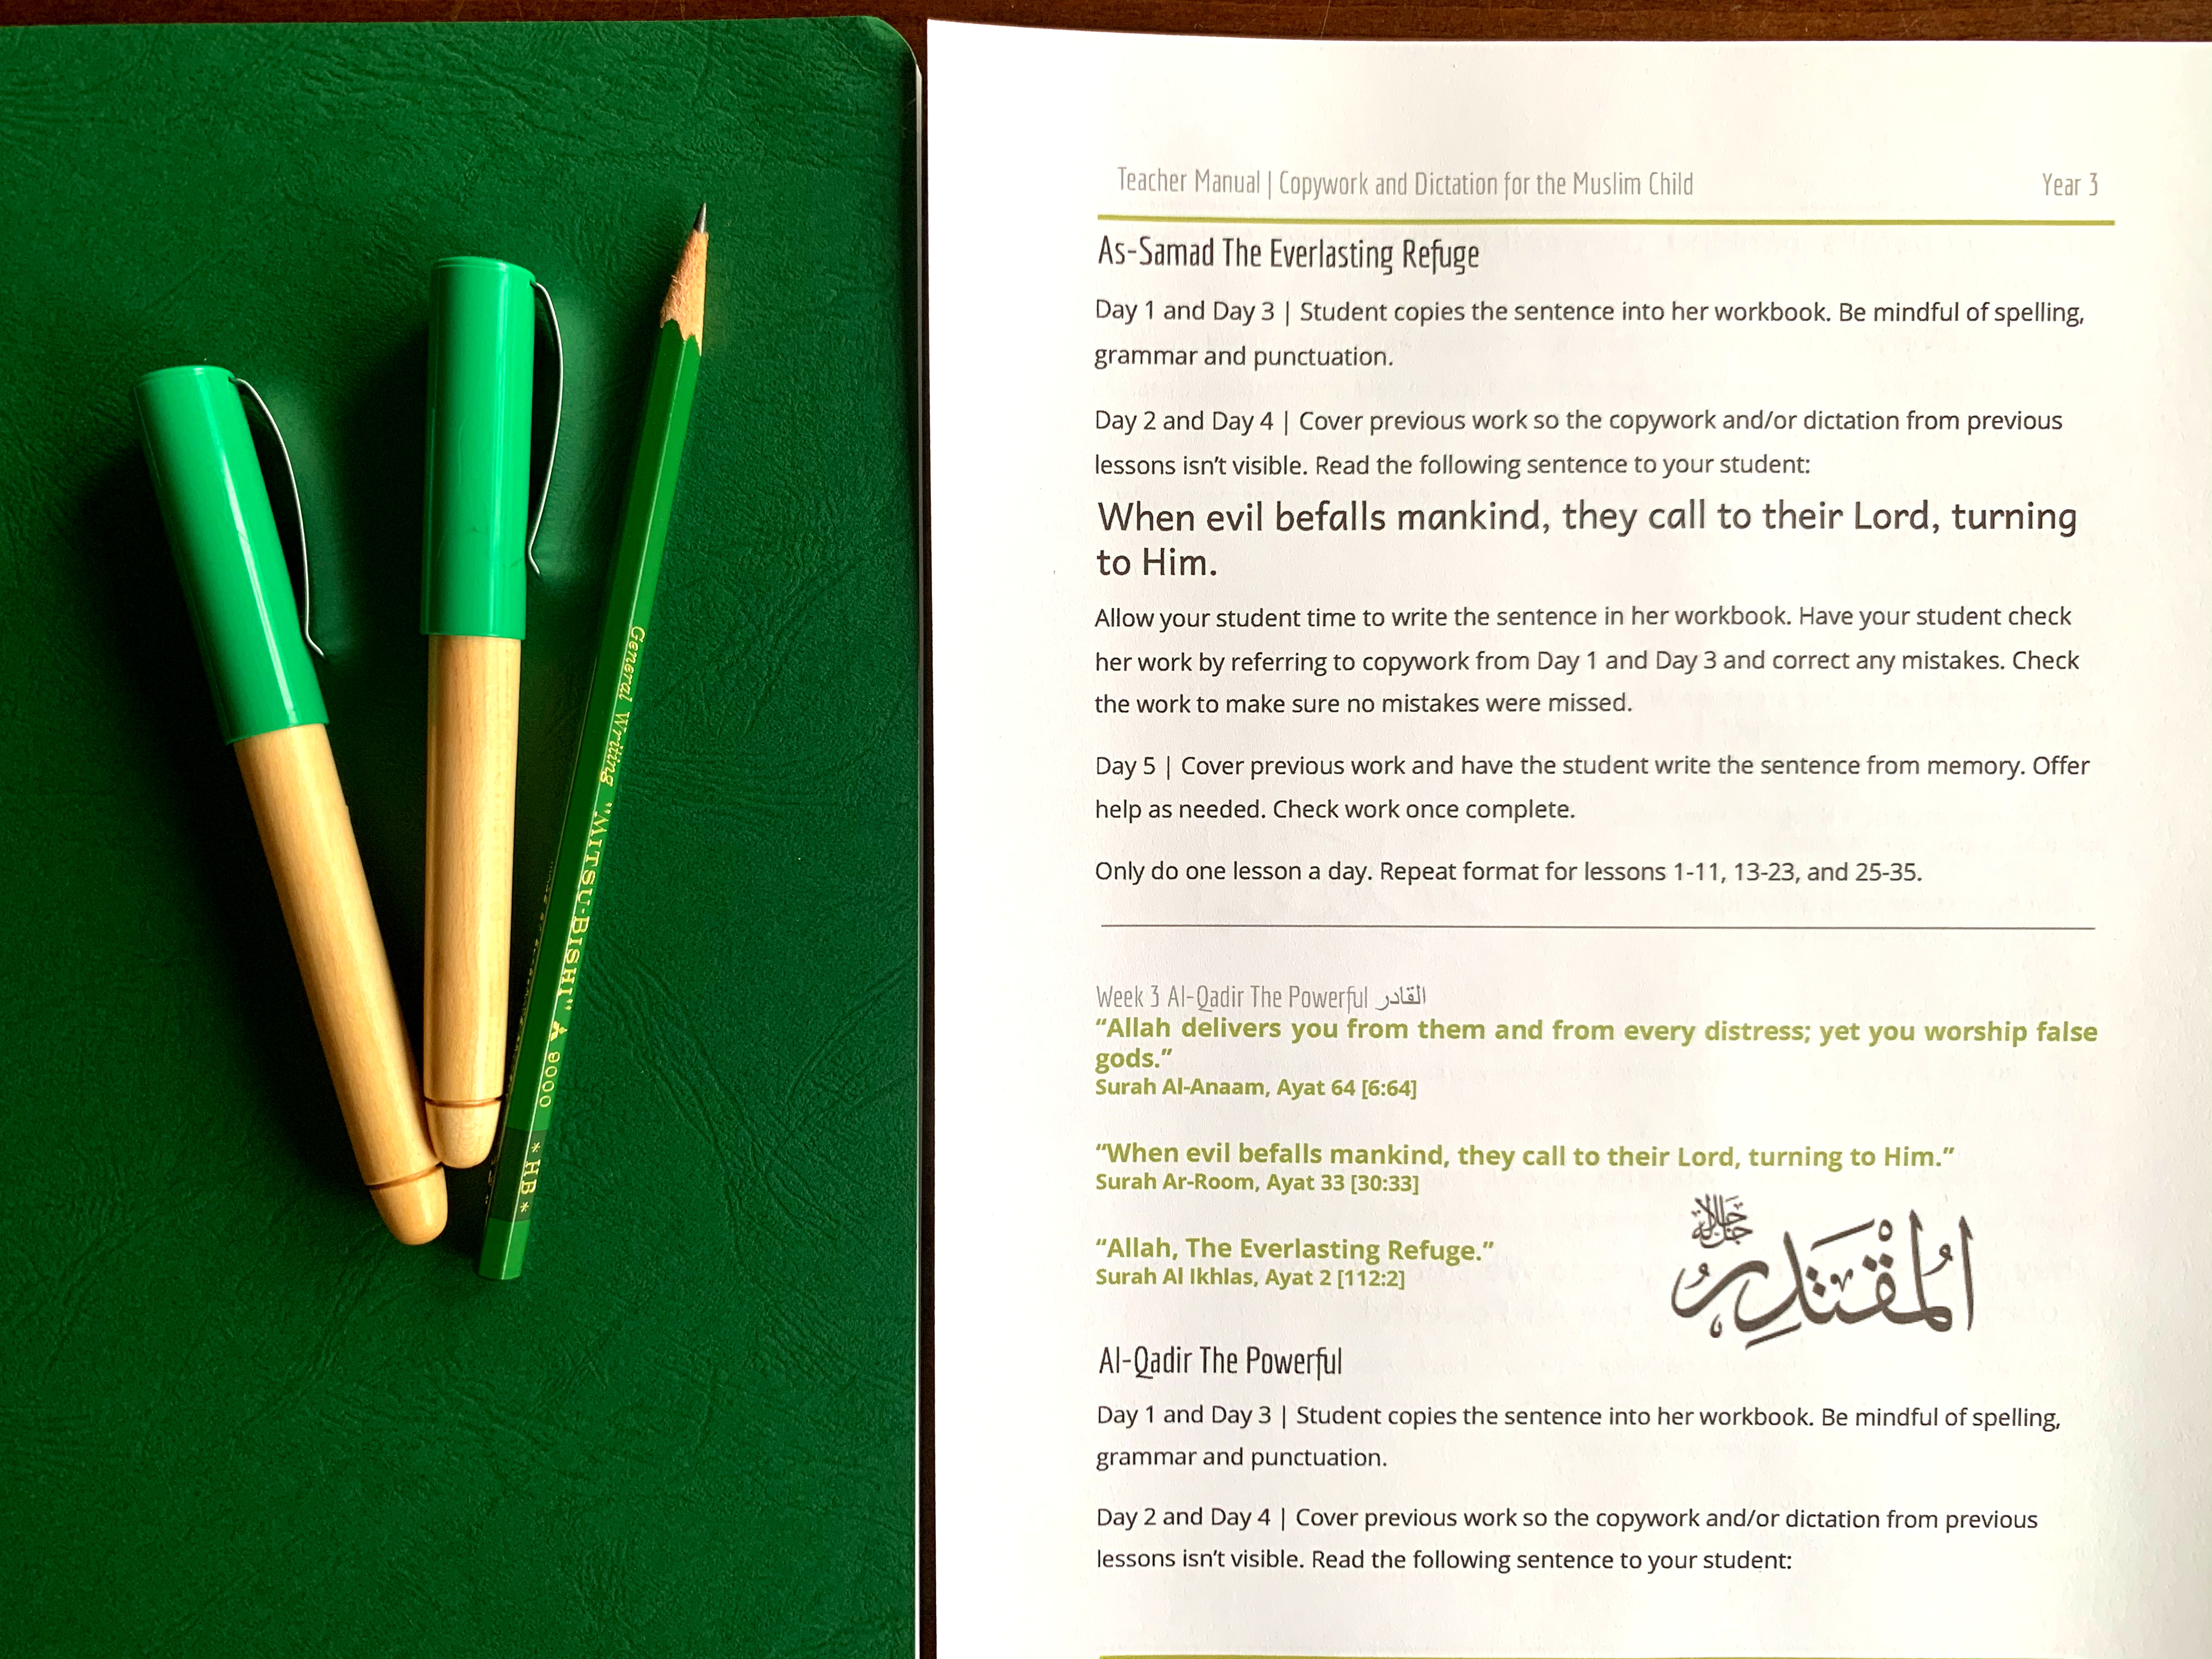 General Writing "MITSU-BISHI" 9000 * HB *
Teacher Manual | Copywork and Dictation for the Muslim Child Year 3
As-Samad The Everlasting Refuge
Day 1 and Day 3 | Student copies the sentence into her workbook. Be mindful of spelling,
grammar and punctuation.
Day 2 and Day 4 | Cover previous work so the copywork and/or dictation from previous
lessons isn't visible. Read the following sentence to your student:
When evil befalls mankind, they call to their Lord, turning
to Him.
Allow your student time to write the sentence in her workbook. Have your student check
her work by referring to copywork from Day 1 and Day 3 and correct any mistakes. Check
the work to make sure no mistakes were missed.
Day 5 | Cover previous work and have the student write the sentence from memory. Offer
help as needed. Check work once complete.
Only do one lesson a day. Repeat format for lessons 1-11, 13-23, and 25-35.
Week 3 Al-Qadir The Powerful القادر
“Allah delivers you from them and from every distress; yet you worship false
gods.”
Surah Al-Anaam, Ayat 64 [6:64]
“When evil befalls mankind, they call to their Lord, turning to Him.”
Surah Ar-Room, Ayat 33 [30:33]
“Allah, The Everlasting Refuge.”
Surah Al Ikhlas, Ayat 2 [112:2]
جَلَّ جَلَالُهُ
الْمُقْتَدِرُ
Al-Qadir The Powerful
Day 1 and Day 3 | Student copies the sentence into her workbook. Be mindful of spelling,
grammar and punctuation.
Day 2 and Day 4 | Cover previous work so the copywork and/or dictation from previous
lessons isn't visible. Read the following sentence to your student: